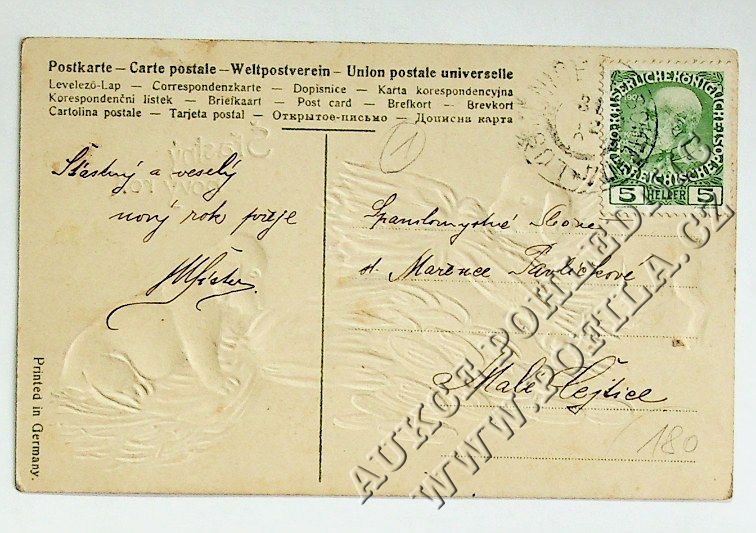 Postkarte — Carte postale — Weltpostverein — Union postale universelle
Levelező-Lap — Correspondenzkarte — Dopisnice — Karta korespondencyjna
Korespondenční lístek — Briefkaart — Post card — Brefkort — Brevkort
Cartolina postale — Tarjeta postal — Открытое-письмо — Дописна карта
1
Šťastný a veselý
nový rok přeje
Šťastný
nový rok
5 HELLER 5
Slečna
sl. Marence Pavlíčkové
Malé
180
Printed in Germany.
AUKCE POHLEDNIC
WWW.POFILA.CZ